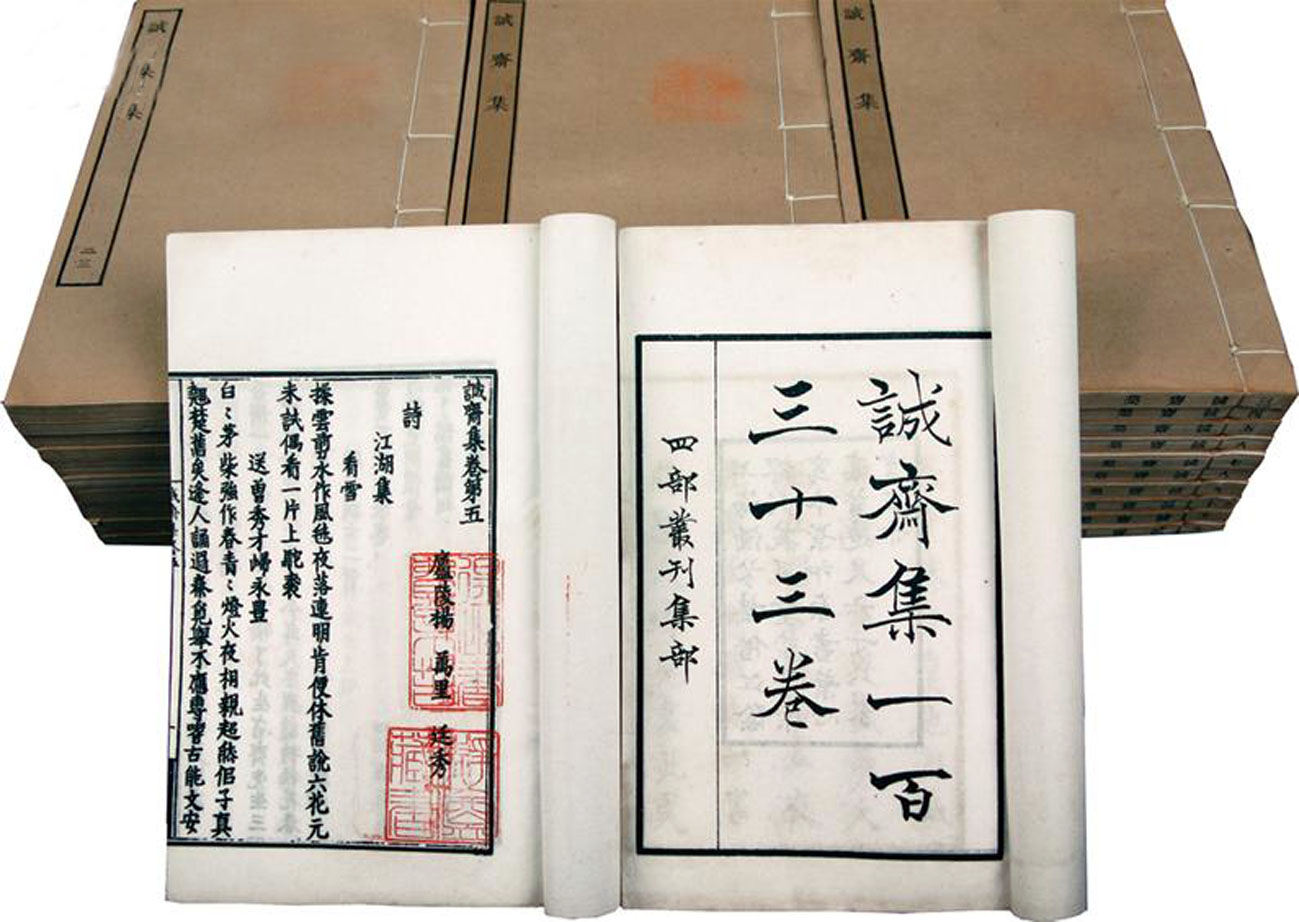 誠齋集
誠齋集
誠齋集一百
三十三卷
四部叢刊集部
誠齋集卷第五
廬陵楊 萬里 廷秀
詩
江湖集
看雪
揉雲剪水作風毬夜落連明肯便休舊說六花元
未訣偶看一片上駝裘
送曽秀才歸永豐
白〻茅柴強作春青〻燈火夜相親超然侣子真
翹楚舊矣逢人誦過秦覓舉不應專嗜古能文安